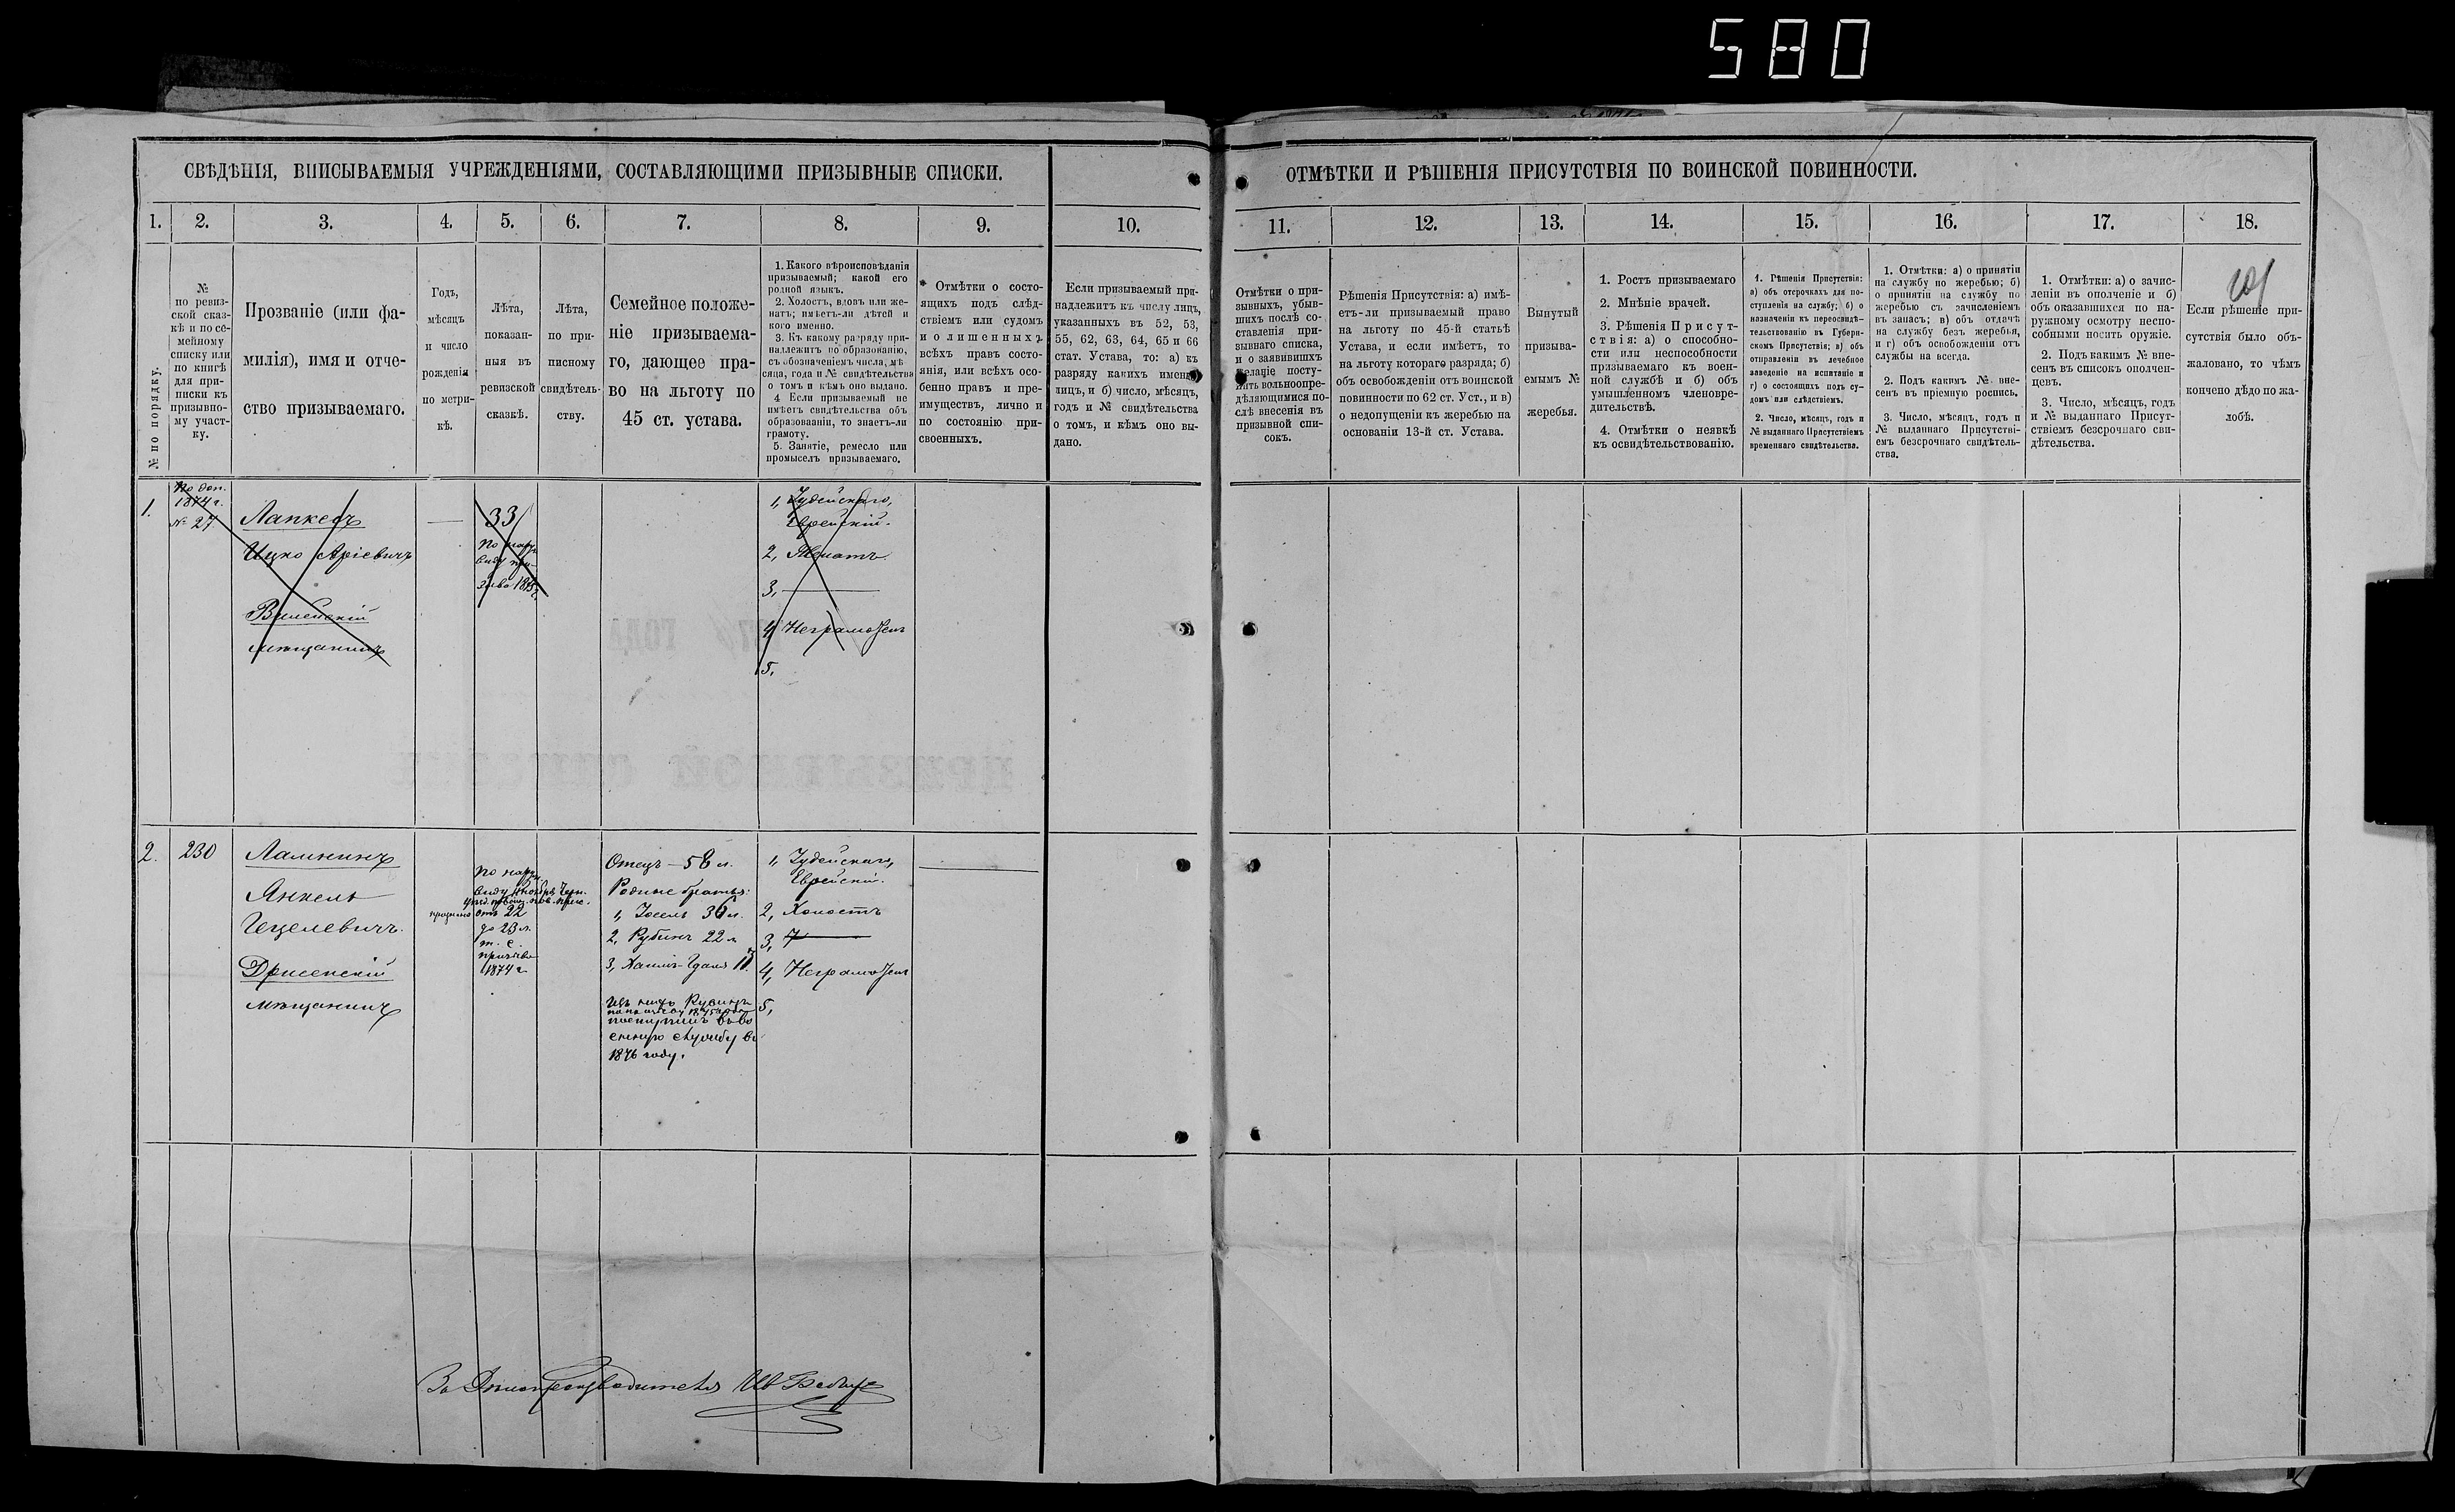 580
СВѢДѢНІЯ, ВПИСЫВАЕМЫЯ УЧРЕЖДЕНІЯМИ, СОСТАВЛЯЮЩИМИ ПРИЗЫВНЫЕ СПИСКИ.
ОТМѢТКИ И РѢШЕНІЯ ПРИСУТСТВІЯ ПО ВОИНСКОЙ ПОВИННОСТИ.
1. 2. 3. 4. 5. 6. 7. 8. 9. 10. 11. 12. 13. 14. 15. 16. 17. 18.
№ по порядку.
№
по ревиз-
ской сказ-
кѣ и по се-
мейному
списку или
по книгѣ
для при-
писки къ
призывно-
му участ-
ку.
Прозваніе (или фа-
милія), имя и отче-
ство призываемаго.
Годъ,
мѣсяцъ
и число
рожденія
по метри-
кѣ.
Лѣта,
показан-
ныя въ
ревизской
сказкѣ.
Лѣта,
по при-
писному
свидѣтель-
ству.
Семейное положе-
ніе призываема-
го, дающее пра-
во на льготу по
45 ст. устава.
1. Какого вѣроисповѣданія
призываемый; какой его
родной языкъ.
2. Холостъ, вдовъ или же-
натъ; имѣетъ-ли дѣтей и
кого именно.
3. Къ какому разряду при-
надлежитъ по образованію,
съ обозначеніемъ числа, мѣ-
сяца, года и № свидѣтельства
о томъ и кѣмъ оно выдано.
4 Если призываемый не
имѣетъ свидѣтельства объ
образованіи, то знаетъ-ли
грамоту.
5. Занятіе, ремесло или
промыселъ призываемаго.
Отмѣтки о состо-
ящихъ подъ слѣд-
ствіемъ или судомъ
и о лишенныхъ
всѣхъ правъ состо-
янія, или всѣхъ осо-
бенно правъ и пре-
имуществъ, лично и
по состоянію при-
своенныхъ.
Если призываемый при-
надлежитъ къ числу лицъ,
указанныхъ въ 52, 53,
55, 62, 63, 64, 65 и 66
стат. Устава, то: а) къ
разряду какихъ именно
лицъ, и б) число, мѣсяцъ,
годъ и № свидѣтельства
о томъ, и кѣмъ оно вы-
дано.
Отмѣтки о при-
зывныхъ, убыв-
шихъ послѣ со-
ставленія при-
зывнаго списка,
и о заявившихъ
желаніе посту-
пить вольноопре-
дѣляющимися по-
слѣ внесенія въ
призывной спи-
сокъ.
Рѣшенія Присутствія: а) имѣ-
етъ-ли призываемый право
на льготу по 45-й статьѣ
Устава, и если имѣетъ, то
на льготу котораго разряда; б)
объ освобожденіи отъ воинской
повинности по 62 ст. Уст., и в)
о недопущеніи къ жеребью на
основаніи 13-й ст. Устава.
Вынутый
призыва-
емымъ №
жеребья.
1. Ростъ призываемаго
2. Мнѣніе врачей.
3. Рѣшенія Присут-
ствія: а) о способно-
сти или неспособности
призываемаго къ воен-
ной службѣ и б) объ
умышленномъ членовре-
дительствѣ.
4. Отмѣтки о неявкѣ
къ освидѣтельствованію.
1. Рѣшенія Присутствія:
а) объ отсрочкахъ для по-
ступленія на службу; б) о
назначеніи къ переосвидѣ-
тельствованію въ Губерн-
скомъ Присутствіи; в) объ
отправленіи въ лечебное
заведеніе на испытаніе и
г) о состоящихъ подъ су-
домъ или слѣдствіемъ.
2. Число, мѣсяцъ, годъ и
№ выданнаго Присутствіемъ
временнаго свидѣтельства.
1. Отмѣтки: а) о принятіи
на службу по жеребью; б)
о принятіи на службу по
жеребью съ зачисленіемъ
въ запасъ; в) объ отдачѣ
на службу безъ жеребья,
и г) объ освобожденіи отъ
службы на всегда.
2. Подъ какимъ № вне-
сенъ въ пріемную роспись.
3. Число, мѣсяцъ, годъ и
№ выданнаго Присутстві-
емъ безсрочнаго свидѣтель-
ства.
1. Отмѣтки: а) о зачис-
леніи въ ополченіе и б)
объ оказавшихся по на-
ружному осмотру неспо-
собными носить оружіе.
2. Подъ какимъ № вне-
сенъ въ списокъ ополчен-
цевъ.
3. Число, мѣсяцъ, годъ
и № выданнаго Присут-
ствіемъ безсрочнаго сви-
дѣтельства.
Если рѣшеніе при-
сутствія было объ-
жаловано, то чѣмъ
кончено дѣдо по жа-
лобѣ.
1.
По доп.
1874 г.
№ 27
Лапкесъ
Ицко Аріевичъ
Виленскій
мѣщанинъ
33
По нар.
виду при-
зыва 1875 г.
1, Іудейскаго,
Еврейскій.
2, Женатъ.
3,
4, Неграмотенъ
5,
2. 230
Лапинъ
Янкель
Гецелевичъ.
Дрисенскій
мѣщанинъ
По нар.
виду
отъ 22
до 23 л.
т. е.
призыва
1874 г.
Отецъ – 58 л.
Родные братья:
1, Іосель 36 л.
2, Рубинъ 22 л.
3, Хаимъ-
Изъ нихъ Рубинъ
поступилъ въ во
енную службу въ
1876 году.
1, Іудейскаго,
Еврейскій.
2, Холостъ
3,
4, Неграмотенъ
5,
За Дѣлопроизводителя